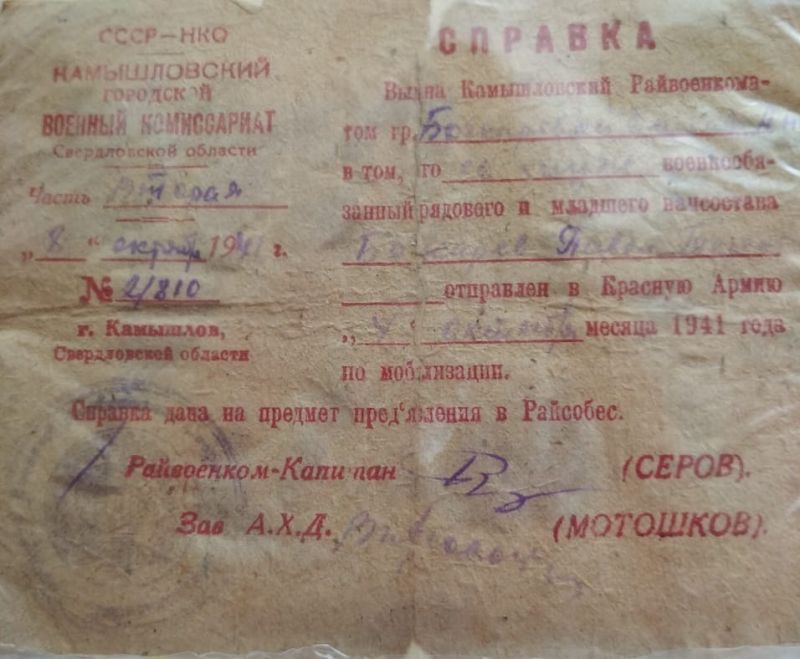 СССР-НКО
КАМЫШЛОВСКИЙ
ГОРОДСКОЙ
ВОЕННЫЙ КОМИССАРИАТ
Свердловской области
Часть Вторая
„8“ октября 1941 г.
№ 2/810
г. Камышлов,
Свердловской области
СПРАВКА
Выдана Камышловский Райвоенкома-
том гр.
в том, го военнообя-
занный рядового и младшего начсостава
Павел
отправлен в Красную Армию
„7“ октября месяца 1941 года
по мобилизации.
Справка дана на предмет пред'явления в Райсобес.
Райвоенком-Капитан (СЕРОВ).
Зав А.Х.Д. (МОТОШКОВ).